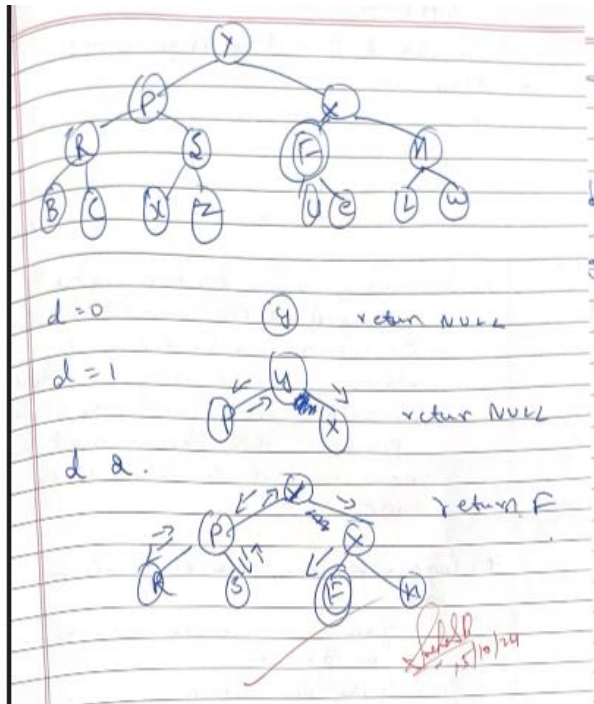 Y
P X
R S F H
B C X Z U E L W
d=0 y return NULL
d=1 y
P X return NULL
d 2. Y return F
P X
R S F H
15/10/24